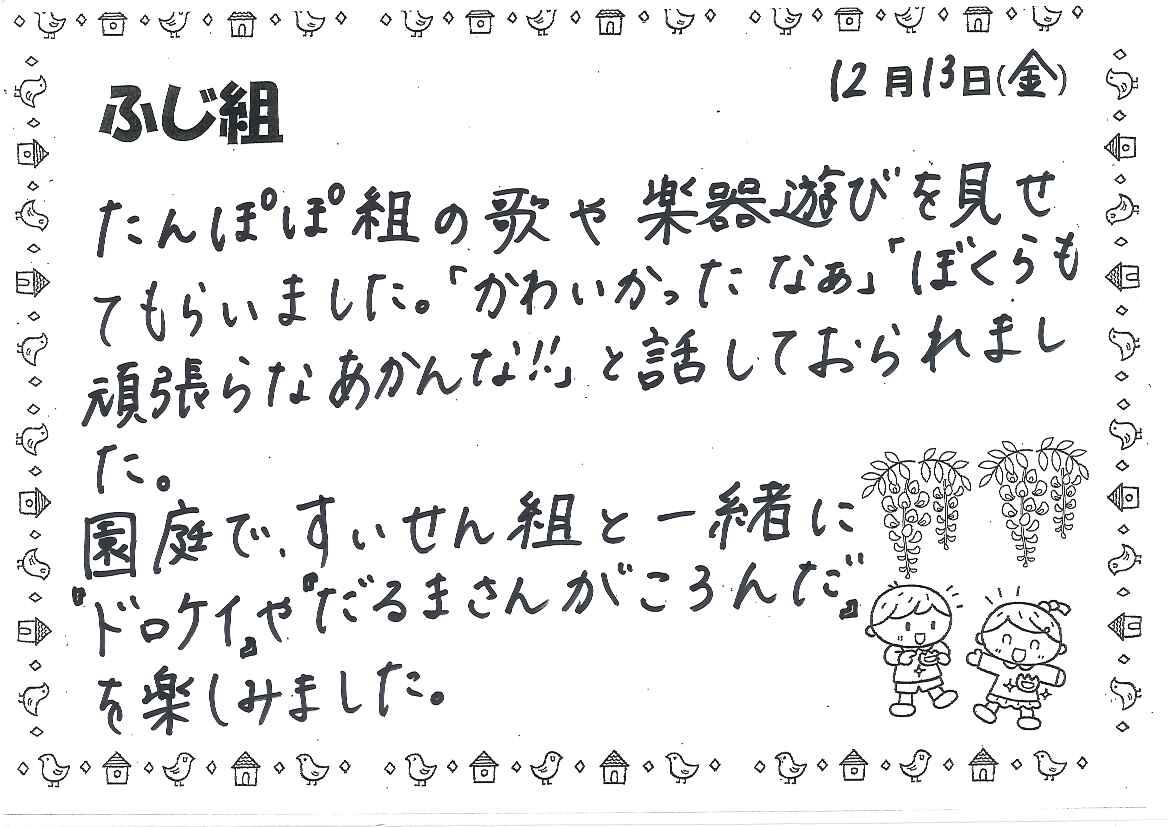 12月13日(金)
ふじ組
たんぽぽ組の歌や楽器遊びを見せ
てもらいました。「かわいかったなぁ」「ぼくらも
頑張らなあかんな!!」と話しておられまし
た。
園庭で、すいせん組と一緒に
『ドロケイ』や『だるまさんがころんだ』
を楽しみました。